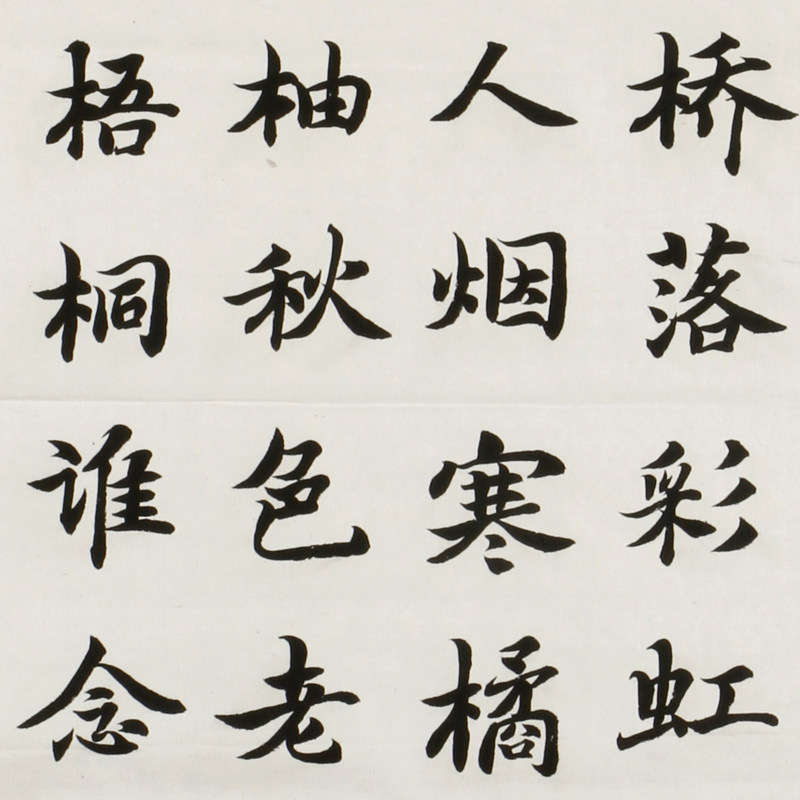 桥落彩虹
人烟寒橘
柚秋色老
梧桐谁念